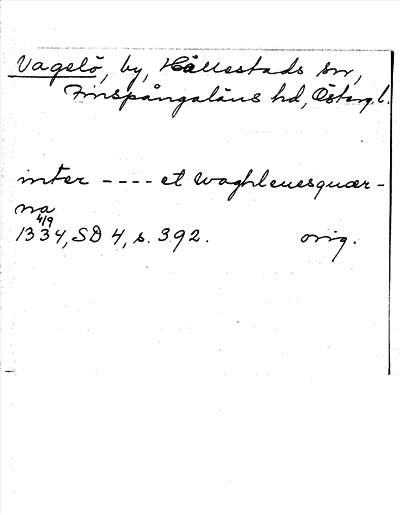 Vagelö, by, Hällestads sn,
Finspångaläns hd, Österg. l.
inter - - - - et waghleuesquær-
na
4/9
1334, SD 4, s. 392. orig.